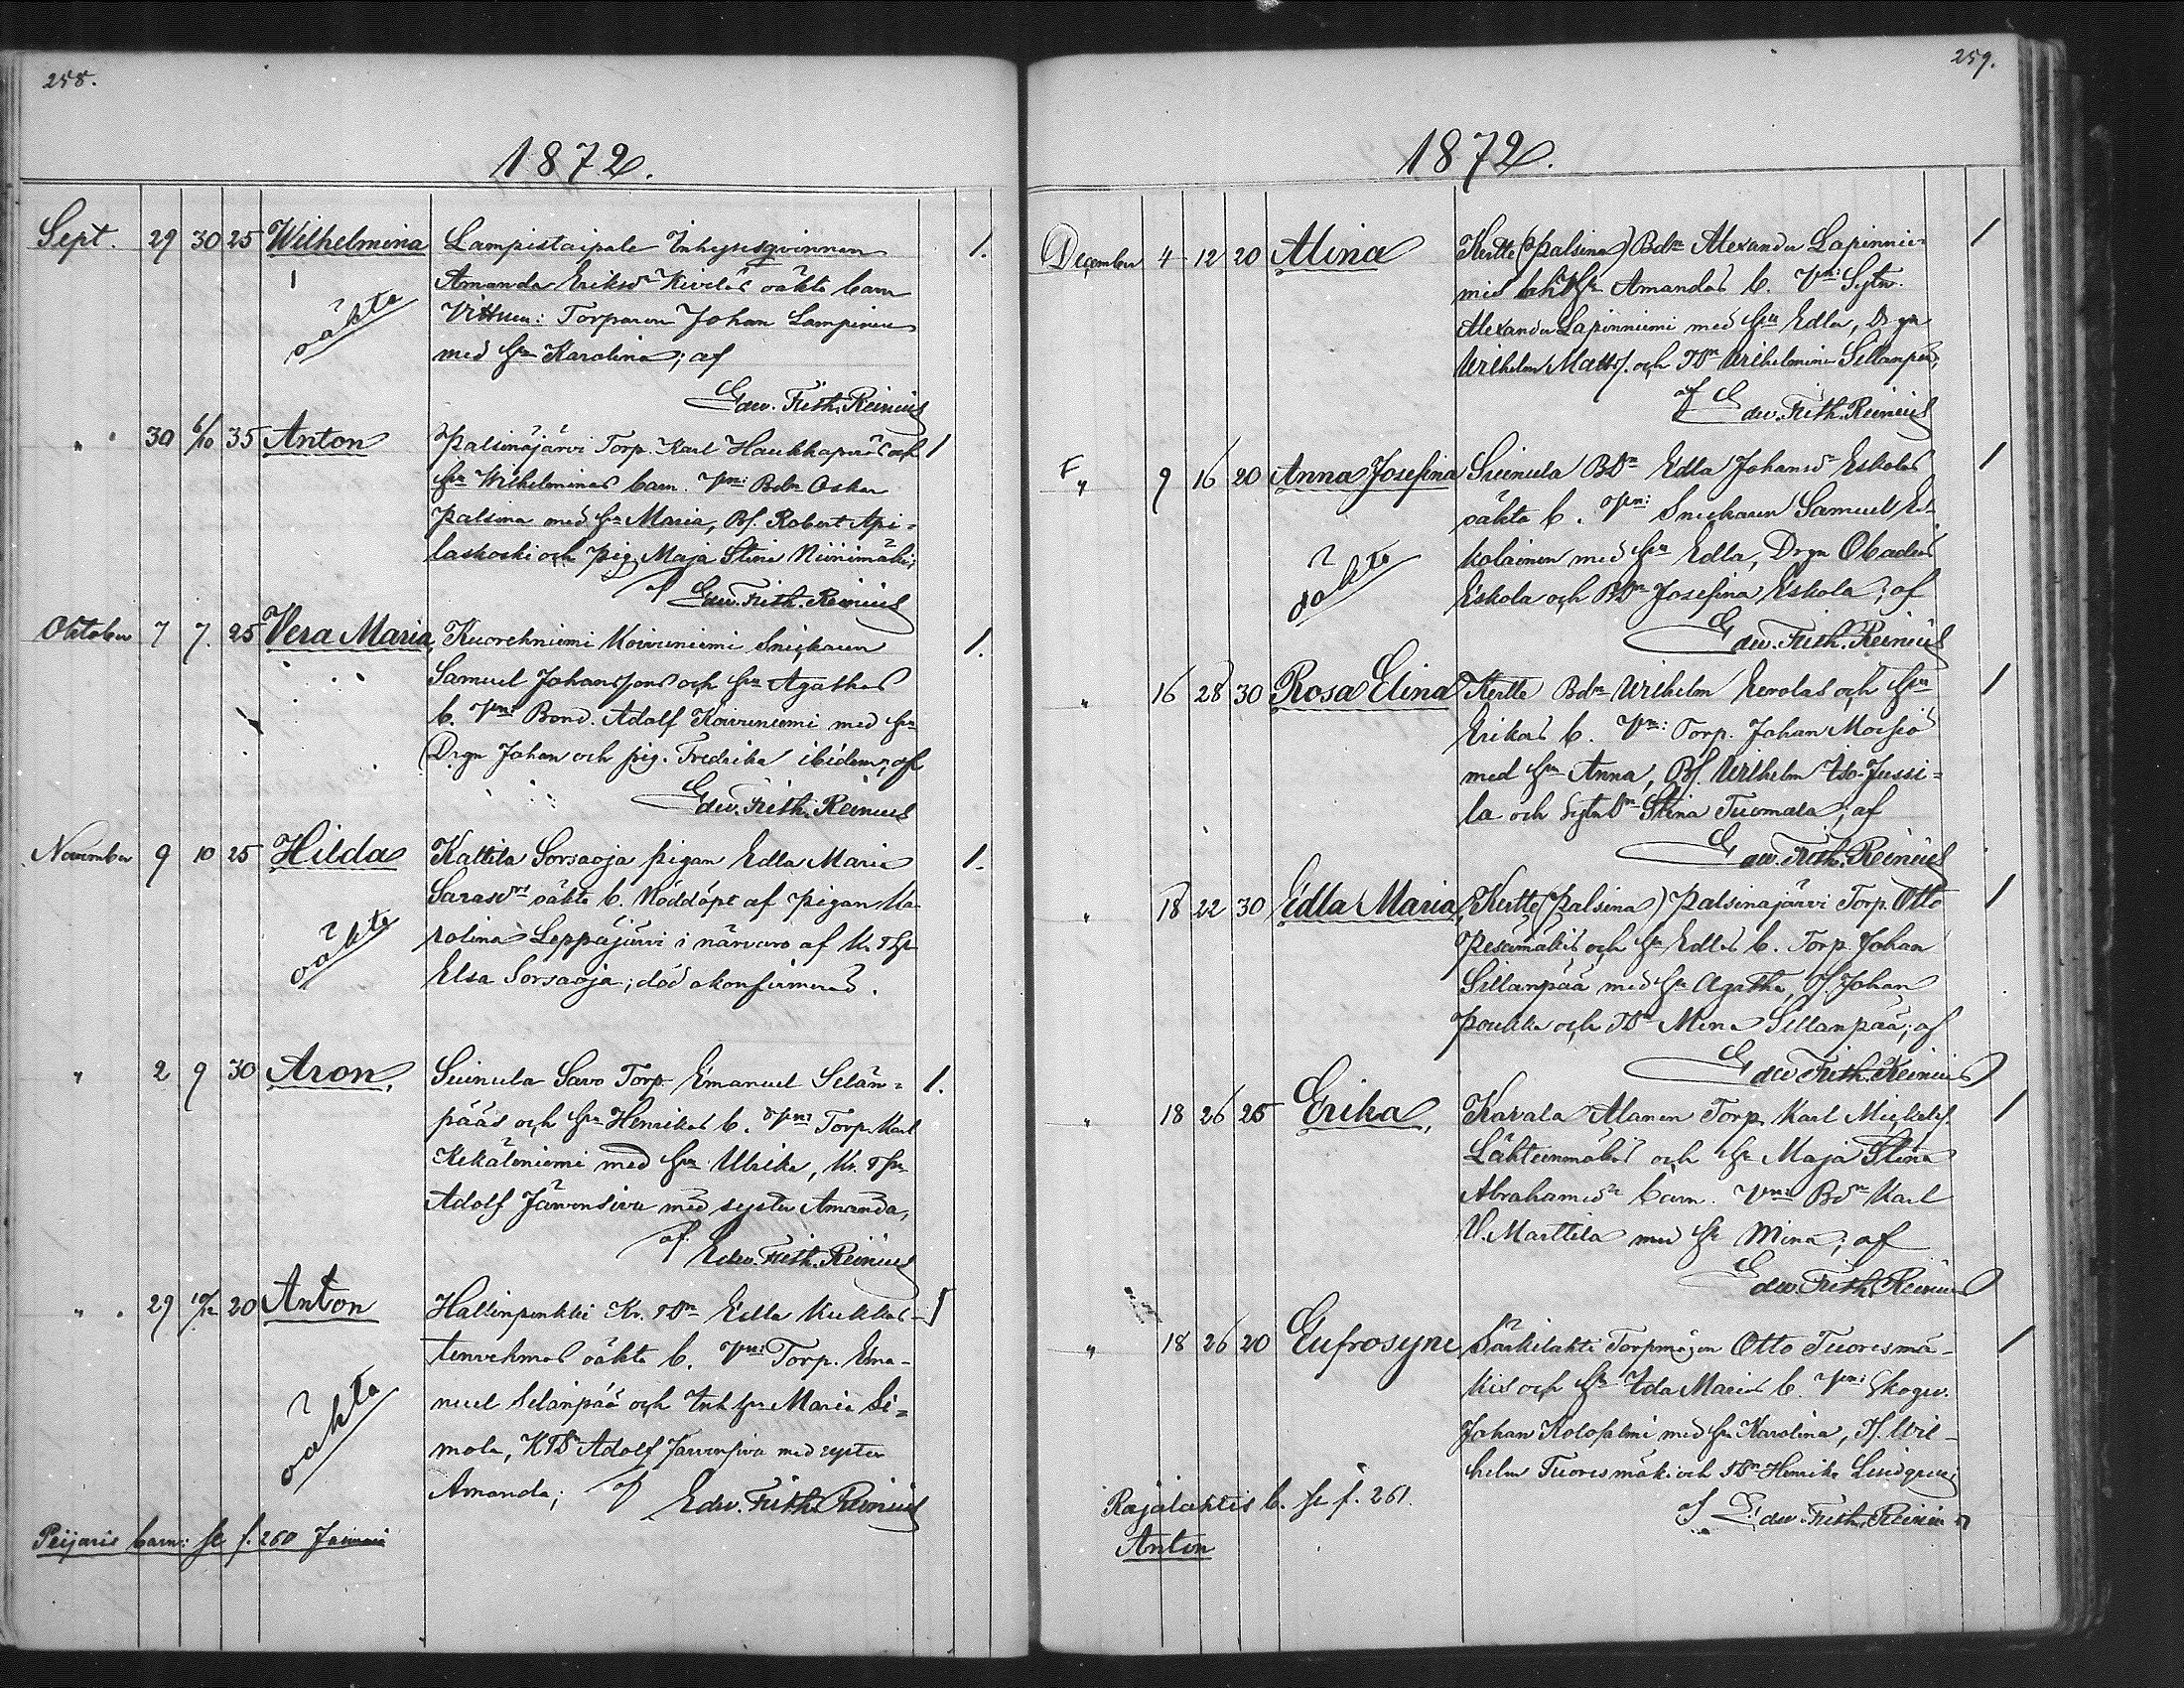 258.
1872.
Sept. 29 30 25 Wilhelmina Lampistaipale Inhysesqvinnan
Amanda Eriksdr Kiviläs oäkta barn
oäkta
Vittnen: Torparen Johan Lampinen
med hu Karolina; af
Edw. Frith. Reinius
" 30 6/10 35 Anton Palsinajärvi Torp. Karl Haukkaperäs och 1
hu Wilhelminas barn. Vn: Bdn Oskar
Palsina med hu Maria, Bs. Robert Api-
laskoski och pig. Maja Stina Niinimäki;
af Edw. Frith. Reinius
Oktober 7 7. 25 Vera Maria, Kuorehniemi Koivuniemi Snickaren 1.
Samuel Johanssons och hu Agathas
b. Vn: Bond. Adolf Koivuniemi med hu
Drgn Johan och pig. Fredrika ibidem; af
Edw. Frith. Reinius
November 9 10 25 Hilda Kattila Sorsaoja pigan Edla Maria 1.
oäkta b. Nöddöpt af pigan Ka-
oäkta
rolina Leppäjärvi i närvaro af
Elsa Sorsaoja; död okonfirmerad.
" 2 9 30 Aron, Suinula Savo Torp. Emanuel Selän- 1.
pääs och hu Henrikas b. Vn: Torp. Karl
Kekäleniemi med hu Ulrika,
Adolf Järvensivu med syster Amanda,
af Edw. Frith. Reinius
" 29 10/12 20 Anton Hallinpenkki Edla Kukkas- 1
tenvehmas oäkta b. Vn: Torp. Ema-
nuel Selänpää och Inh hu Maria Si-
oäkta
mola, Adolf Järvensivu med syster
Amanda; af Edw. Frith. Reinius
Peijaris barn: se f. 260 Januari
259.
1872.
December 4 12 20 Alina Kertte (Palsina) Bdn Alexander Lapinnie- 1
mis och hu Amandas b. Vn: Sytn.
Alexander Lapinniemi med hu Edla, Drgn
Wilhelm Matts. och Wilhelmina Sillanpää,
af Edw. Frith. Reinius
F
" 9 16 20 Anna Josefina Suinula Edla Johansdr Eskolas 1
oäkta b. Vn: Snickaren Samuel Es-
kolainen med hu Edla, Drgn Obadias
oäkta
Eskola och Josefina Eskola; af
Edw. Frith. Reinius
" 16 28 30 Rosa Elina Kertte Bdn Wilhelm Eerolas och hu 1
Erikas b. Vn: Torp. Johan Moisio
med hu Anna, Bs. Wilhelm Iso-Jussi-
la och Stina Tuomala; af
Edw. Frith. Reinius
" 18 22 30 Edla Maria, Kertte (Palsina) Palsinajärvi Torp. Otto 1
Pesämäkis och hu Edlas b. Torp. Johan
Sillanpää med hu Agatha, Johan
Poukka och Mina Sillanpää; af
Edw. Frith. Reinius
" 18 26 25 Erika, Karala Alanen Torp. Karl Mickels. 1
Lähteenmäkis och hu Maja Stina
Abrahamsdr barn. Vn: Bdn Karl
W. Marttila med hu Mina; af
Edw. Frith. Reinius
" 18 26 20 Eufrosyne Särkilahti Torpmågen Otto Tuoresmä- 1
kis och hu Ida Marias b. Vn: Skogv.
Johan Kolosalmi med hu Karolina, Wil-
helm Tuoresmäki och Henrika Lindqvist;
af Edw. Frith. Reinius
Rajalahtis b. se f. 261.
Anton